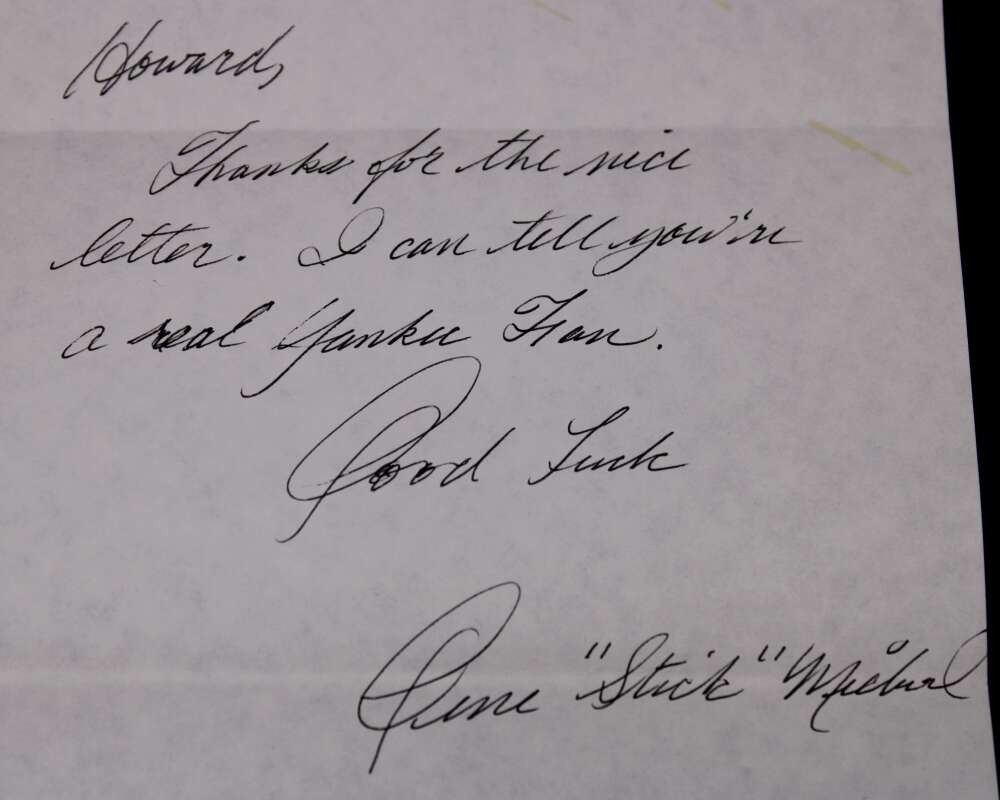 Howard,
Thanks for the nice
letter. I can tell you're
a real Yankee Fan.
Good Luck
Gene "Stick" Michael